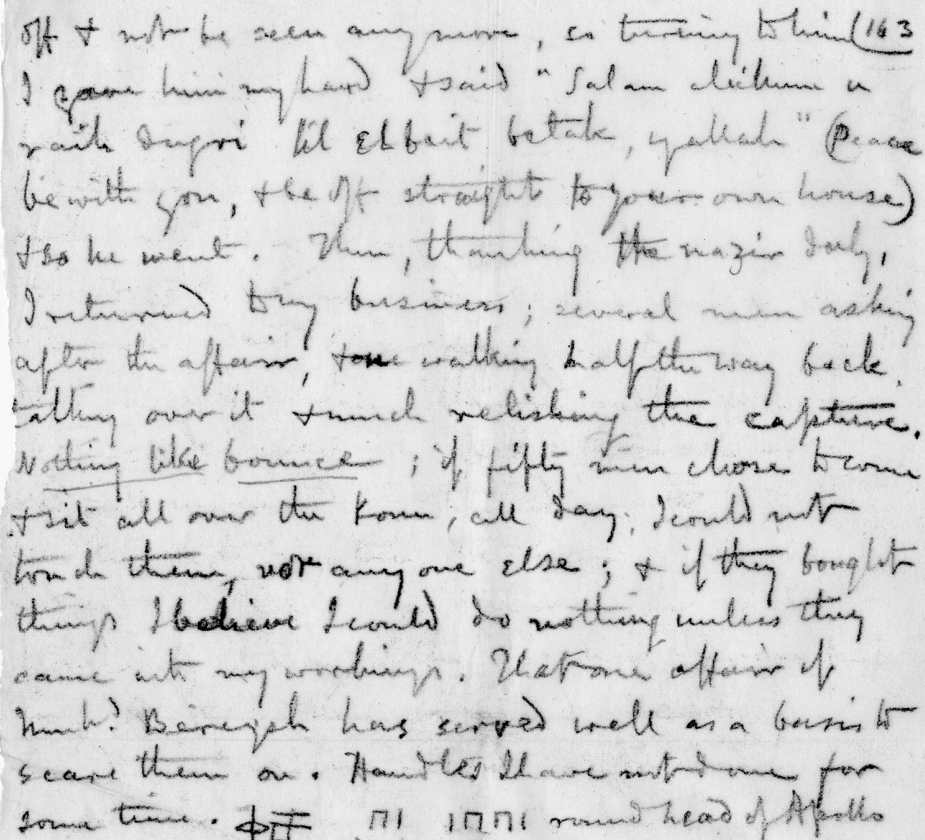 off & not be seen anymore, so turning to him (163
I gave him my hand & said "Salam alikum u
raih dugri lil Elbait betak, yallah" (Peace
be with you, & be off straight to your own house)
& so he went. Then, thanking the nazir duly,
I returned to my business; several men asking
after the affair, & one walking half the way back
talking over it & much relishing the capture.
Nothing like bounce; if fifty men chose to come
& sit all over the Kom, all day, I could not
touch them, nor any one else; & if they bought
things I believe I could do nothing unless they
came into my workings. That one affair of
Muhd. Bereyeh has served well as a basis to
scare them on. Handles I have not done for
some time. round head of Apollo